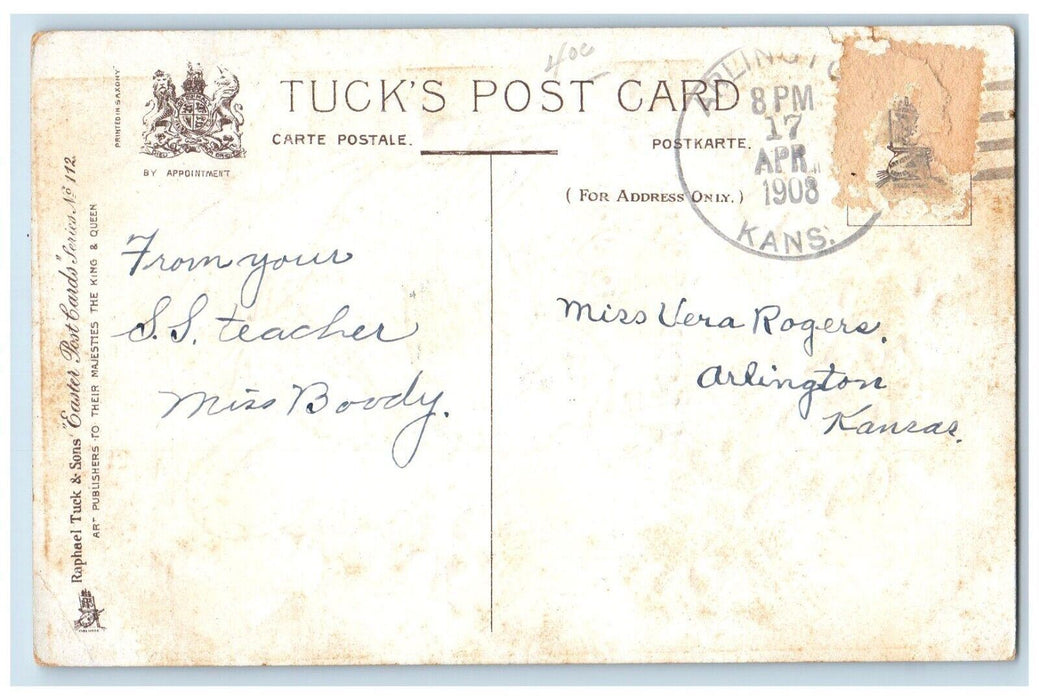 40¢
TUCK'S POST CARD
CARTE POSTALE.
POSTKARTE.
BY APPOINTMENT
PRINTED IN SAXONY
(FOR ADDRESS ONLY.)
ARLINGTON
8 PM
17
APR
1908
KANS.
Raphael Tuck & Sons' "Easter Post Cards" Series No 112.
ART PUBLISHERS TO THEIR MAJESTIES THE KING & QUEEN
From your
S.S. teacher
Miss Boody.
Miss Vera Rogers.
Arlington
Kansas.